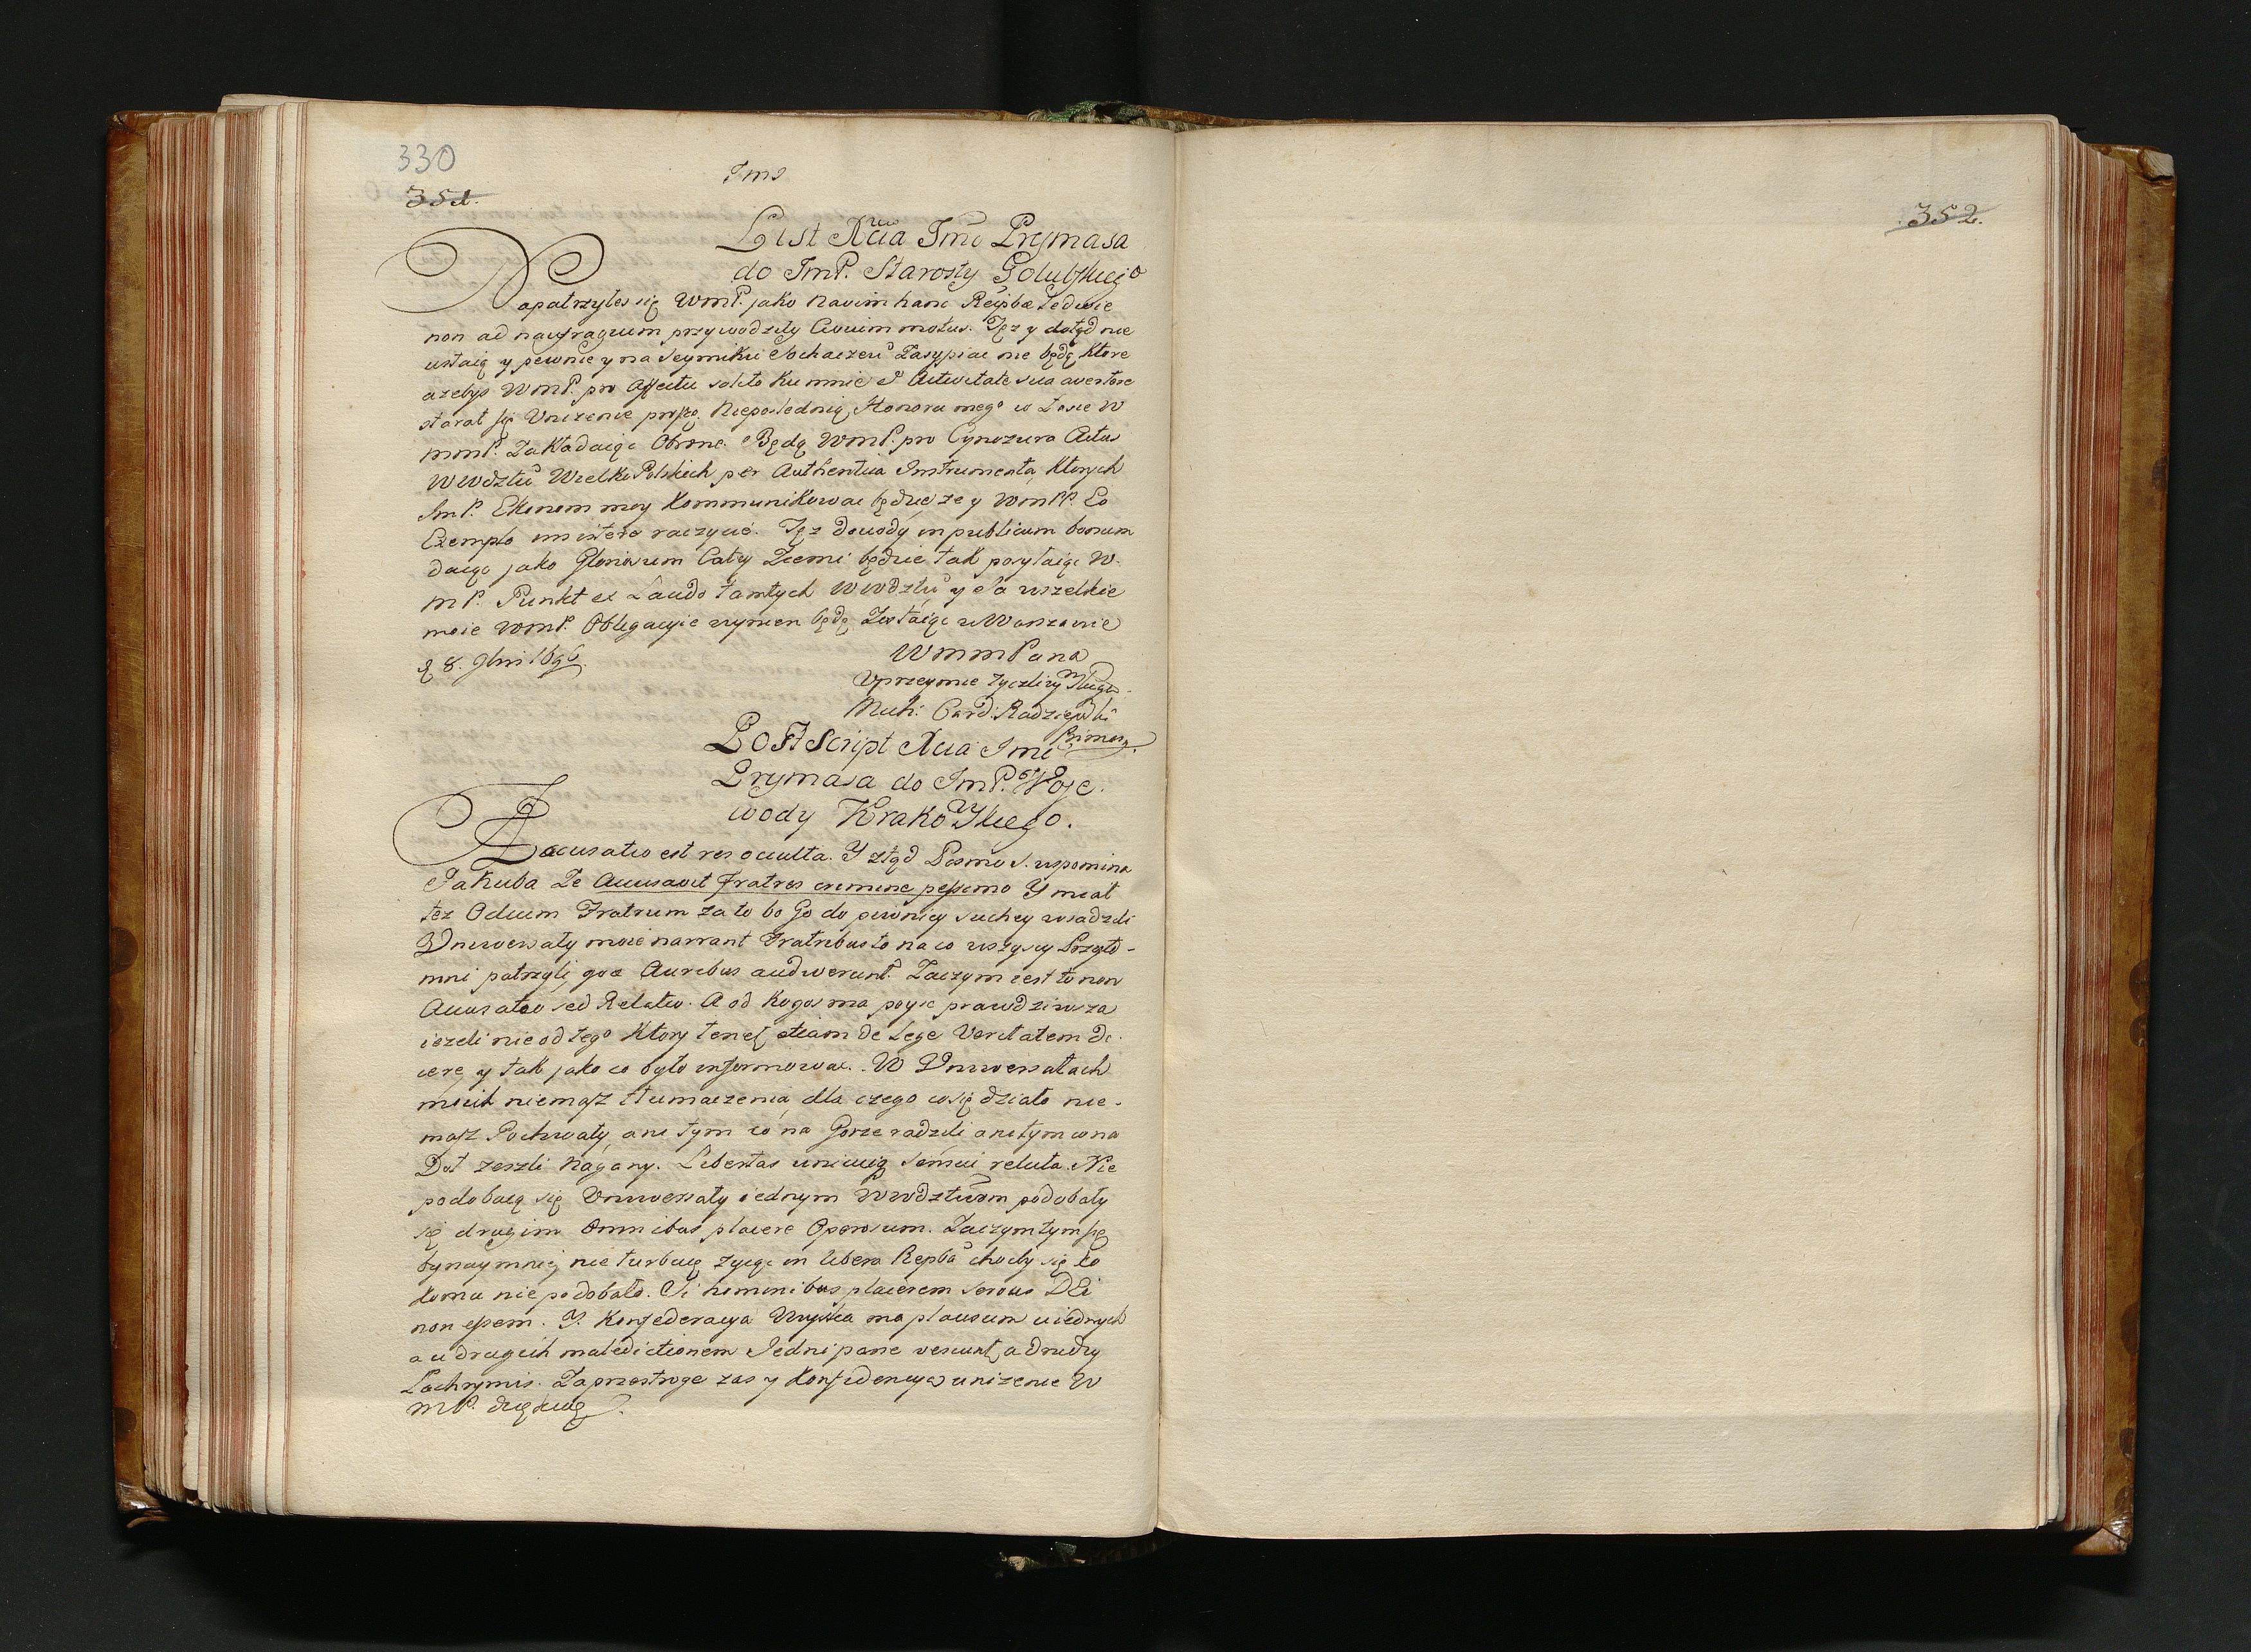 330
351.
Jmo
List Xcia Jmci Prymasa
do JmP. Starosty Golubskiego
Napatrzyłeś się WmP. jako navim hanc Reipbcae ledwie
non ad naufragium przywodziły Civium motus. Też y dotąd nie
ustaią y pewnie y na Seymiku Sochaczew zasypiac nie będą Ktore
azebyś WmP. pro affectu solito ku mnie et Activitate sua avertere
starał się Unizenie proszę, Nieposlednią Honoru mego w Łasce W
mmP. Zakładaiąc Obronę. Będą WmP. pro Cynozura Actus
Wwdztw Wielko Polskich per Authentica Instrumenta, Ktorych
JmP. Ekonom moy Kommunikowac będzie ze y WmPP. Eo
Exemplo raczycie. Też dowody in publicum bonum
daiąc jako Gloriosum Całey Ziemi będzie tak posyłaiąc W.
mP. Punkt ex Laudo tamtych Wwdztw y Ja wszelkie
moie WmP. Obligacyie czynien będę Zostaiąc w Warszawie
d 8. 9bris 1696.
WmmPana
Uprzeymie zyczliwy Sługa
Mich: Card: Radziejowski
Primas.
Postscript Xcia Jmci
Prymasa do JmP. Woje-
wody Krakowskiego.
Accusatio est res occulta. Y ztąd Pismo S. wspomina
Jakuba Ze Accusavit fratres crimine pessimo Y miał
tez Odium Fratrum za to bo Go do piwnicy suchey wsadzili
Uniwersały moie narrant Fratribus to na co wszyscy Przyto-
mni patrzyli, quae Auribus audiverunt. Zaczym iest to non
Accusatio sed Relatio. A od Kogos ma poysc prawdziwsza
iezeli nie od tego Ktory tenet, etiam de lege Veritatem di-
cere, y tak jako co było informowac. W Uniwersałach
moich niemasz tłumaczenia, dla czego co się działo nie-
masz Pochwały, ani tym co na Gorze radzili ani tym co na
Doł zeszli Nagany. Libertas unicuiq reluta. Nie
podobaią się Uniwersały iednym Wwdztwom podobały
się drugim Omnibus placere Operosum. Zaczym tym się
bynaymniej nie turbuię zyiąc in libera Repba choćby się to
komu nie podobało. Si hominibus placerem servus DEi
non essem. Y. Konfederacya Woyska ma plausum u iednych
a u drugich maledictionem Jedni pane vescunt, a drudzy
Lachrymis. Za przestrogę zas y Konfidencyą unizenie W
mP. dziękuię.
352.